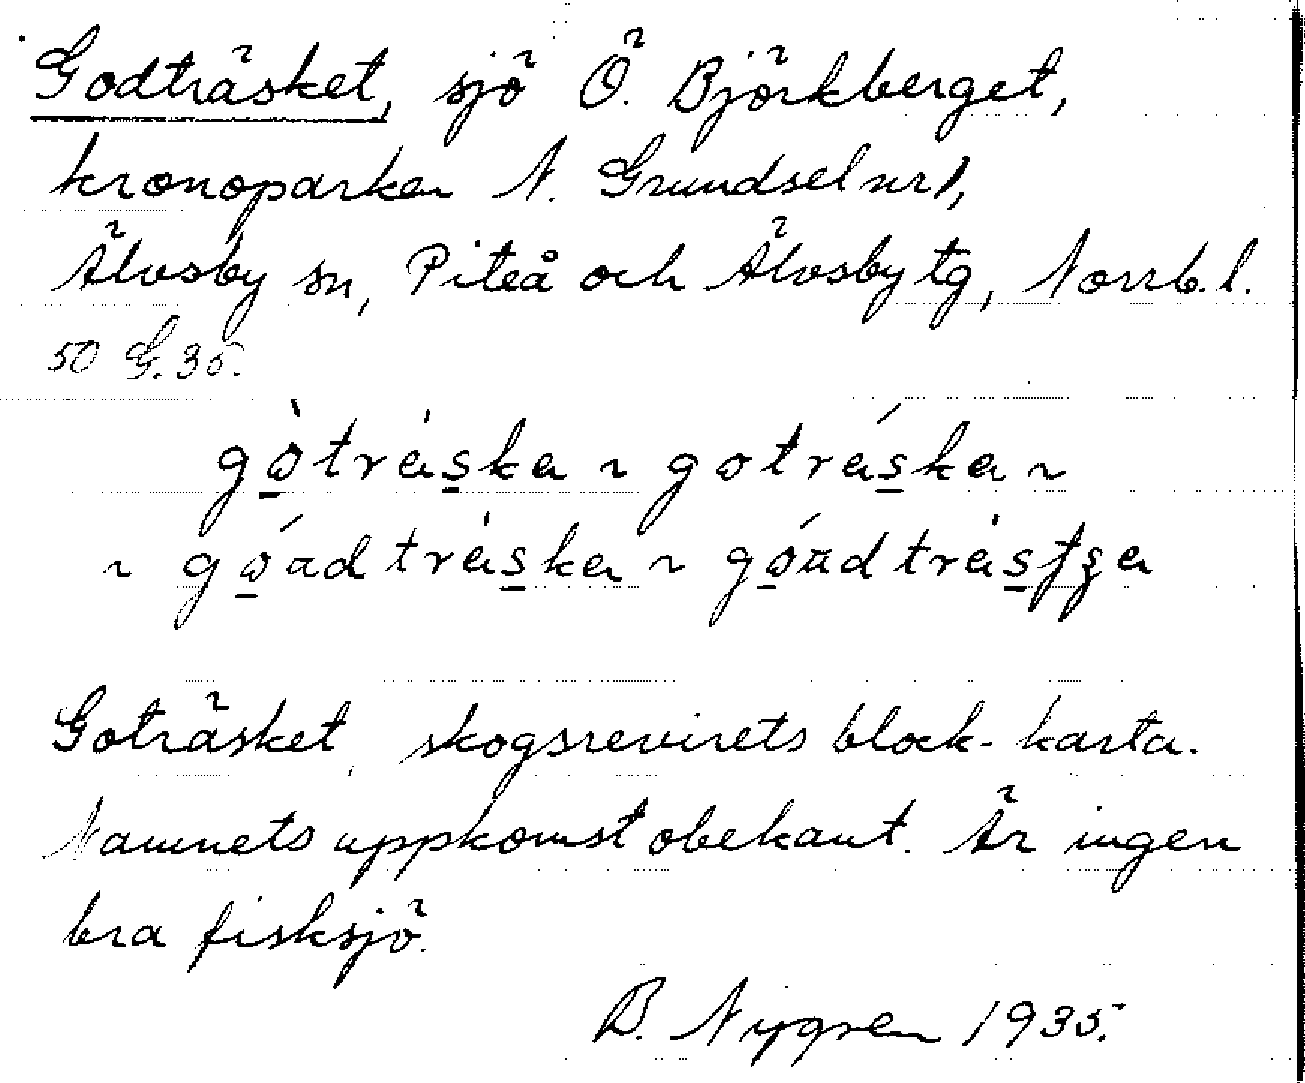 Godträsket, sjö Ö. Björkberget,
kronoparken N. Grundsel nr 1,
Älvsby sn, Piteå och Älvsby tg, Norrb. l.
50 G. 35.
gòträ̀ska ~ goträ́ska ~
~ góadträ̀ska ~ góadträ̀sʃʂa
Goträsket skogsrevirets block-karta.
Namnets uppkomst obekant. Är ingen
bra fisksjö.
B. Nygren 1935.